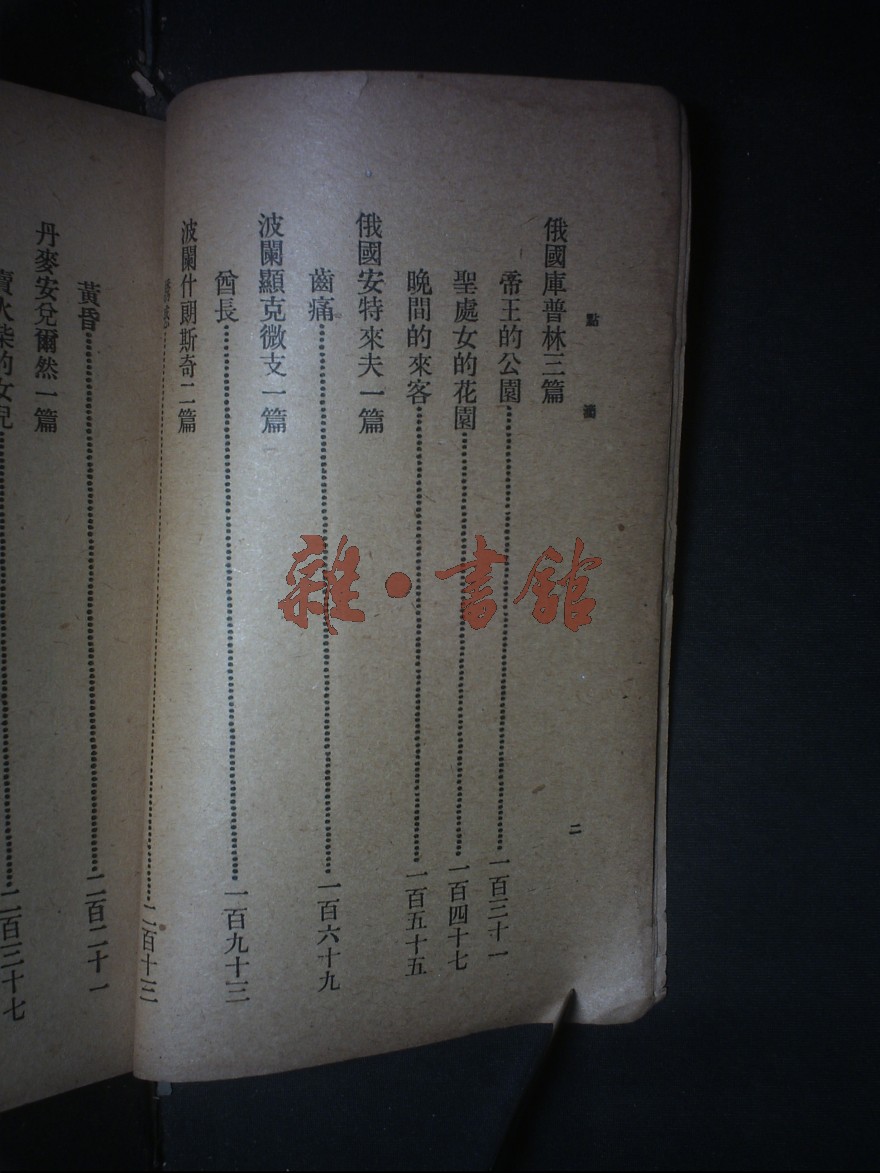 點滴
二
俄國庫普林三篇
帝王的公園……一百三十一
聖處女的花園……一百四十七
晚間的來客……一百五十五
俄國安特來夫一篇
齒痛……一百六十九
波闌顯克微支一篇
酋長……一百九十三
波闌什朗斯奇二篇
……二百十三
黃昏……二百二十一
丹麥安兌爾然一篇
賣火柴的女兒……二百三十七
雜·書館